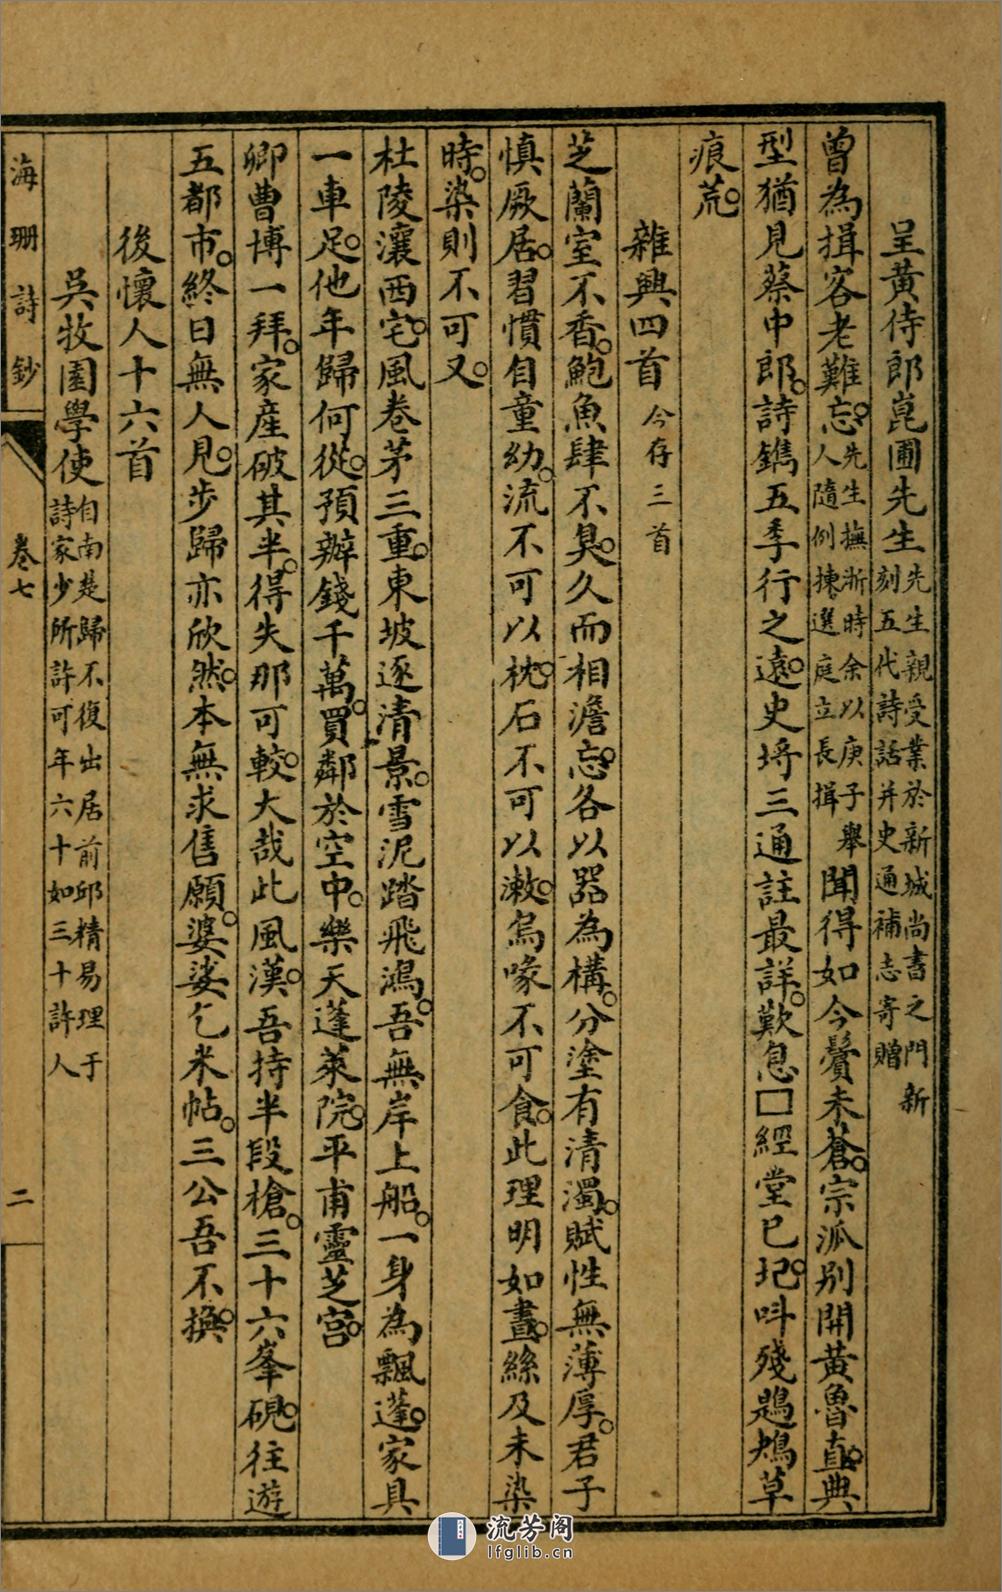 呈黃侍郎崑圃先生先生親受業於新城尚書之門新刻五代詩話并史通補志寄贈
曾為揖客老難忘。先生撫浙時余以庚子舉人隨例揀選庭立長揖聞得如今鬢未蒼。宗派別開黃魯直。典
型猶見蔡中郎。詩鐫五季行之遠。史埒三通註最詳。歎息□經堂已圮。呌殘鶗鴂草
痕荒。
雜興四首今存三首
芝蘭室不香。鮑魚肆不臭。久而相澹忘。各以器為構。分塗有清濁。賦性無薄厚。君子
慎厥居。習慣自童幼。流不可以枕。石不可以漱。烏喙不可食。此理明如晝。絲及未染
時。染則不可又。
杜陵瀼西宅。風卷茅三重。東坡逐清景。雪泥踏飛鴻。吾無岸上船。一身為飄蓬。家具
一車足。他年歸何從。預辦錢千萬。買鄰於空中。樂天蓬萊院。平甫靈芝宮。
卿曹博一拜。家產破其半。得失那可較。大哉此風漢。吾持半段槍。三十六峯硯。往遊
五都市。終日無人見。步歸亦欣然。本無求售願。婆娑乞米帖。三公吾不換。
後懷人十六首
吳牧園學使自南楚歸不復出居前邱精易理于詩家少所許可年六十如三十許人
海珊詩鈔
卷七
二
流芳阁
lfglib.cn